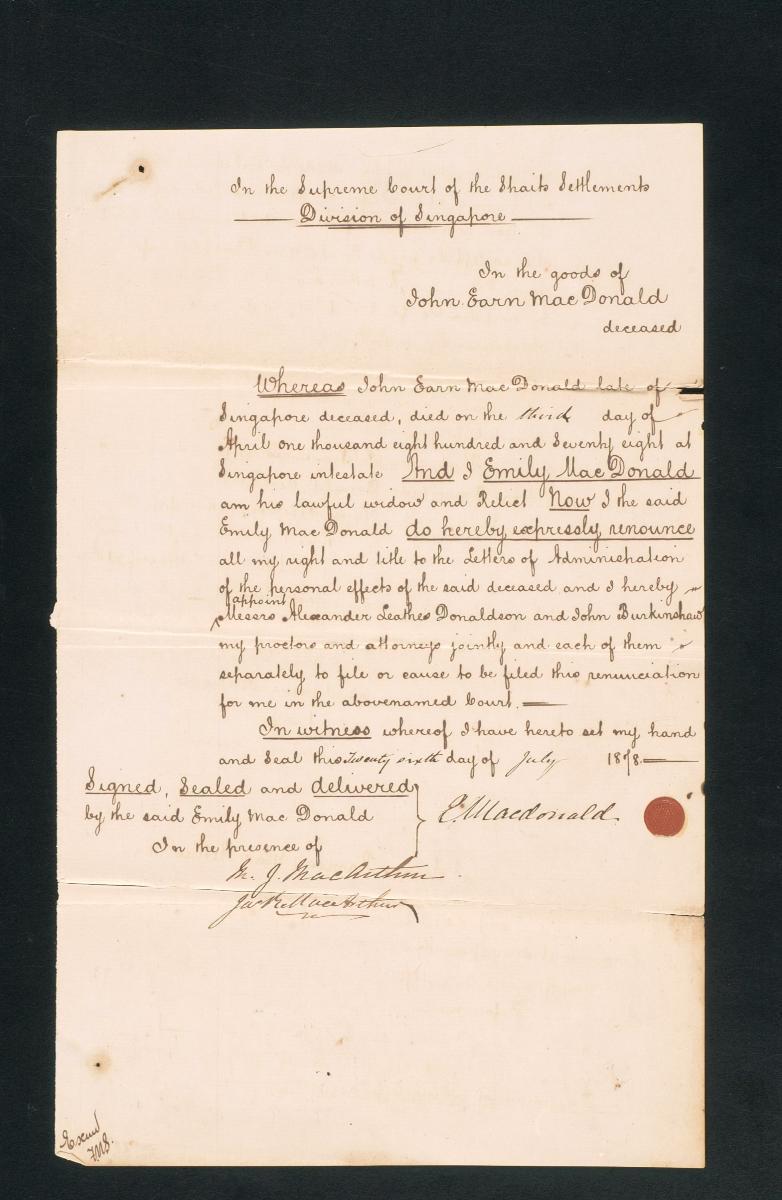 In the Supreme Court of the Straits Settlements
Division of Singapore
In the goods of
John Earn Mac Donald
deceased
Whereas John Earn Mac Donald late of
Singapore deceased, died on the third day of
April one thousand eight hundred and Seventy eight at
Singapore intestate And I Emily Mac Donald
am his lawful widow and Relict Now I the said
Emily Mac Donald do hereby expressly renounce
all my right and title to the Letters of Administration
of the personal effects of the said deceased and I hereby
appoint
Messrs Alexander Leathes Donaldson and John Burkinshaw
my proctors and attorneys jointly and each of them
separately to file or cause to be filed this renunciation
for me in the abovenamed Court.
In witness whereof I have hereto set my hand
and Seal this Twenty sixth day of July 1878.
Signed, Sealed and delivered
by the said Emily Mac Donald
In the presence of
E. Macdonald
M. J. MacArthur
MacArthur